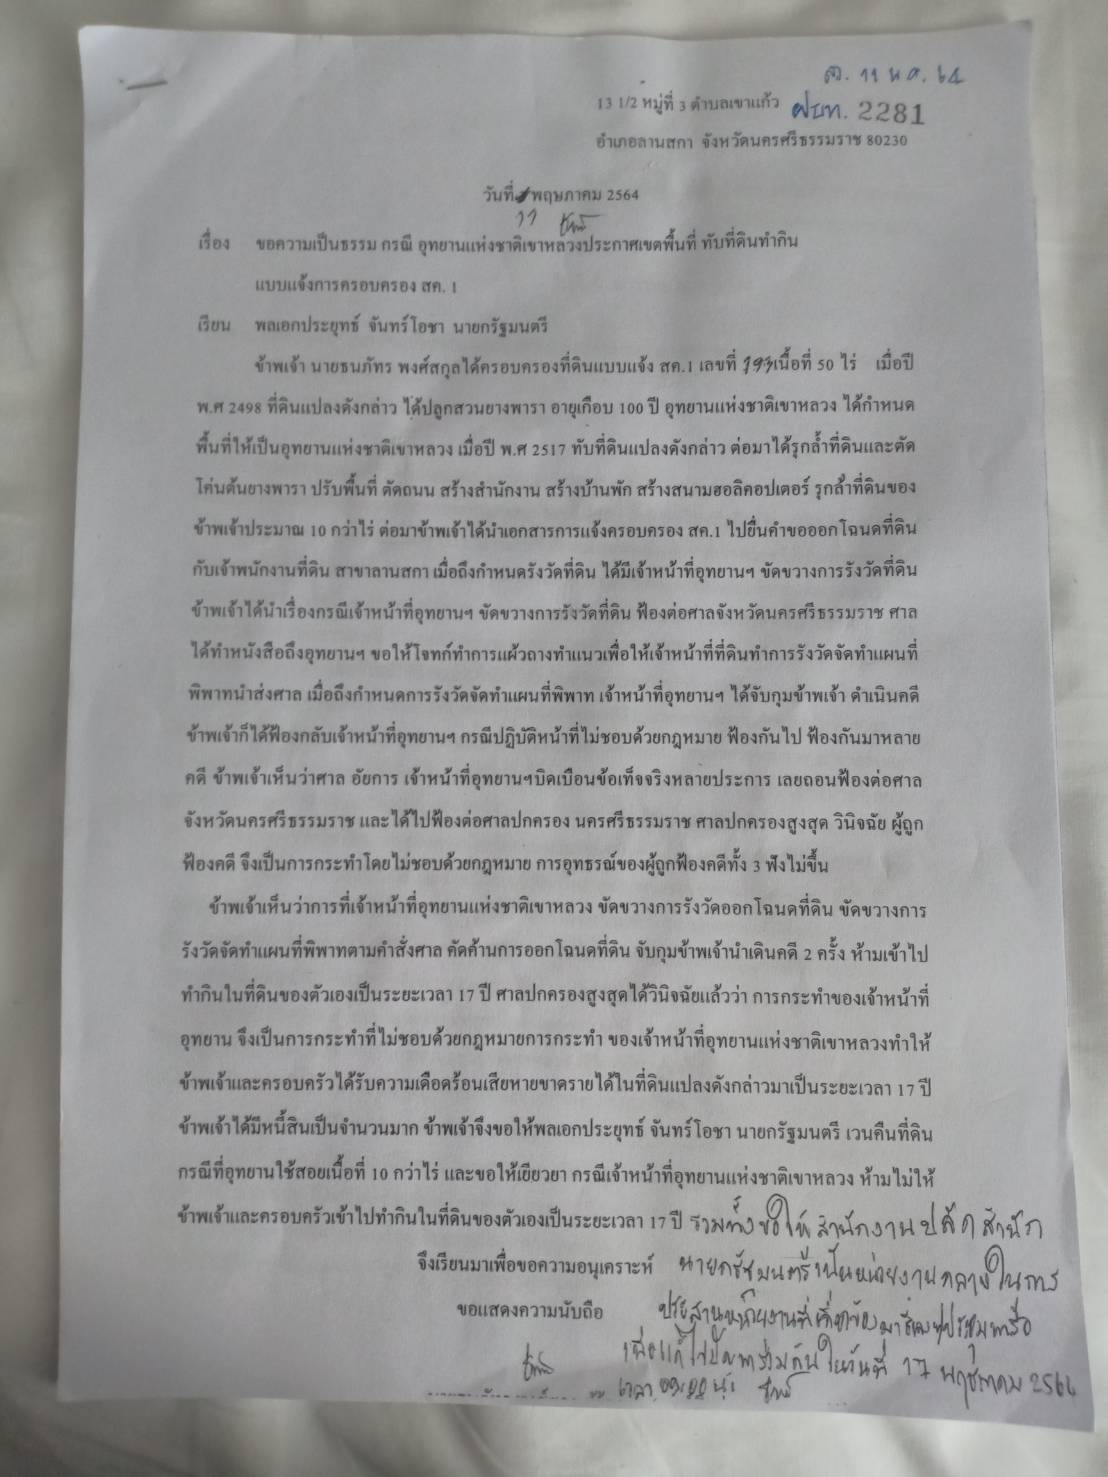 11 พ.ค. 64
13 1/2 หมู่ที่ 3 ตำบลเขาแก้ว
2281
อำเภอลานสกา จังหวัดนครศรีธรรมราช 80230
วันที่ พฤษภาคม 2564
11
เรื่อง ขอความเป็นธรรม กรณี อุทยานแห่งชาติเขาหลวงประกาศเขตพื้นที่ ทับที่ดินทำกิน
แบบแจ้งการครอบครอง สค. 1
เรียน พลเอกประยุทธ์ จันทร์โอชา นายกรัฐมนตรี
ข้าพเจ้า นายธนภัทร พงศ์สกุลได้ครอบครองที่ดินแบบแจ้ง สค.1 เลขที่ 193 เนื้อที่ 50 ไร่ เมื่อปี
พ.ศ 2498 ที่ดินแปลงดังกล่าว ได้ปลูกสวนยางพารา อายุเกือบ 100 ปี อุทยานแห่งชาติเขาหลวง ได้กำหนด
พื้นที่ให้เป็นอุทยานแห่งชาติเขาหลวง เมื่อปี พ.ศ 2517 ทับที่ดินแปลงดังกล่าว ต่อมาได้รุกล้ำที่ดินและตัด
โค่นต้นยางพารา ปรับพื้นที่ ตัดถนน สร้างสำนักงาน สร้างบ้านพัก สร้างสนามฮอลิคอปเตอร์ รุกล้ำที่ดินของ
ข้าพเจ้าประมาณ 10 กว่าไร่ ต่อมาข้าพเจ้าได้นำเอกสารการแจ้งครอบครอง สค.1 ไปยื่นคำขอออกโฉนดที่ดิน
กับเจ้าพนักงานที่ดิน สาขาลานสกา เมื่อถึงกำหนดรังวัดที่ดิน ได้มีเจ้าหน้าที่อุทยานฯ ขัดขวางการรังวัดที่ดิน
ข้าพเจ้าได้นำเรื่องกรณีเจ้าหน้าที่อุทยานฯ ขัดขวางการรังวัดที่ดิน ฟ้องต่อศาลจังหวัดนครศรีธรรมราช ศาล
ได้ทำหนังสือถึงอุทยานฯ ขอให้โจทก์ทำการแผ้วถางทำแนวเพื่อให้เจ้าหน้าที่ที่ดินทำการรังวัดจัดทำแผนที่
พิพาทนำส่งศาล เมื่อถึงกำหนดการรังวัดจัดทำแผนที่พิพาท เจ้าหน้าที่อุทยานฯ ได้จับกุมข้าพเจ้า ดำเนินคดี
ข้าพเจ้าก็ได้ฟ้องกลับเจ้าหน้าที่อุทยานฯ กรณีปฏิบัติหน้าที่ไม่ชอบด้วยกฎหมาย ฟ้องกันไป ฟ้องกันมาหลาย
คดี ข้าพเจ้าเห็นว่าศาล อัยการ เจ้าหน้าที่อุทยานฯบิดเบือนข้อเท็จจริงหลายประการ เลยถอนฟ้องต่อศาล
จังหวัดนครศรีธรรมราช และได้ไปฟ้องต่อศาลปกครอง นครศรีธรรมราช ศาลปกครองสูงสุด วินิจฉัย ผู้ถูก
ฟ้องคดี จึงเป็นการกระทำโดยไม่ชอบด้วยกฎหมาย การอุทธรณ์ของผู้ถูกฟ้องคดีทั้ง 3 ฟังไม่ขึ้น
ข้าพเจ้าเห็นว่าการที่เจ้าหน้าที่อุทยานแห่งชาติเขาหลวง ขัดขวางการรังวัดออกโฉนดที่ดิน ขัดขวางการ
รังวัดจัดทำแผนที่พิพาทตามคำสั่งศาล คัดค้านการออกโฉนดที่ดิน จับกุมข้าพเจ้านำเดินคดี 2 ครั้ง ห้ามเข้าไป
ทำกินในที่ดินของตัวเองเป็นระยะเวลา 17 ปี ศาลปกครองสูงสุดได้วินิจฉัยแล้วว่า การกระทำของเจ้าหน้าที่
อุทยาน จึงเป็นการกระทำที่ไม่ชอบด้วยกฎหมายการกระทำ ของเจ้าหน้าที่อุทยานแห่งชาติเขาหลวงทำให้
ข้าพเจ้าและครอบครัวได้รับความเดือดร้อนเสียหายขาดรายได้ในที่ดินแปลงดังกล่าวมาเป็นระยะเวลา 17 ปี
ข้าพเจ้าได้มีหนี้สินเป็นจำนวนมาก ข้าพเจ้าจึงขอให้พลเอกประยุทธ์ จันทร์โอชา นายกรัฐมนตรี เวนคืนที่ดิน
กรณีที่อุทยานใช้สอยเนื้อที่ 10 กว่าไร่ และขอให้เยียวยา กรณีเจ้าหน้าที่อุทยานแห่งชาติเขาหลวง ห้ามไม่ให้
ข้าพเจ้าและครอบครัวเข้าไปทำกินในที่ดินของตัวเองเป็นระยะเวลา 17 ปี รวมทั้งขอให้สำนักงานปลัดสำนัก
จึงเรียนมาเพื่อขอความอนุเคราะห์ นายกรัฐมนตรีเป็นหน่วยงานกลางในการ
ขอแสดงความนับถือ ประสานหน่วยงานที่เกี่ยวข้องมาประชุมหารือ
เพื่อแก้ไขปัญหาร่วมกันในวันที่ 17 พฤษภาคม 2564
เวลา